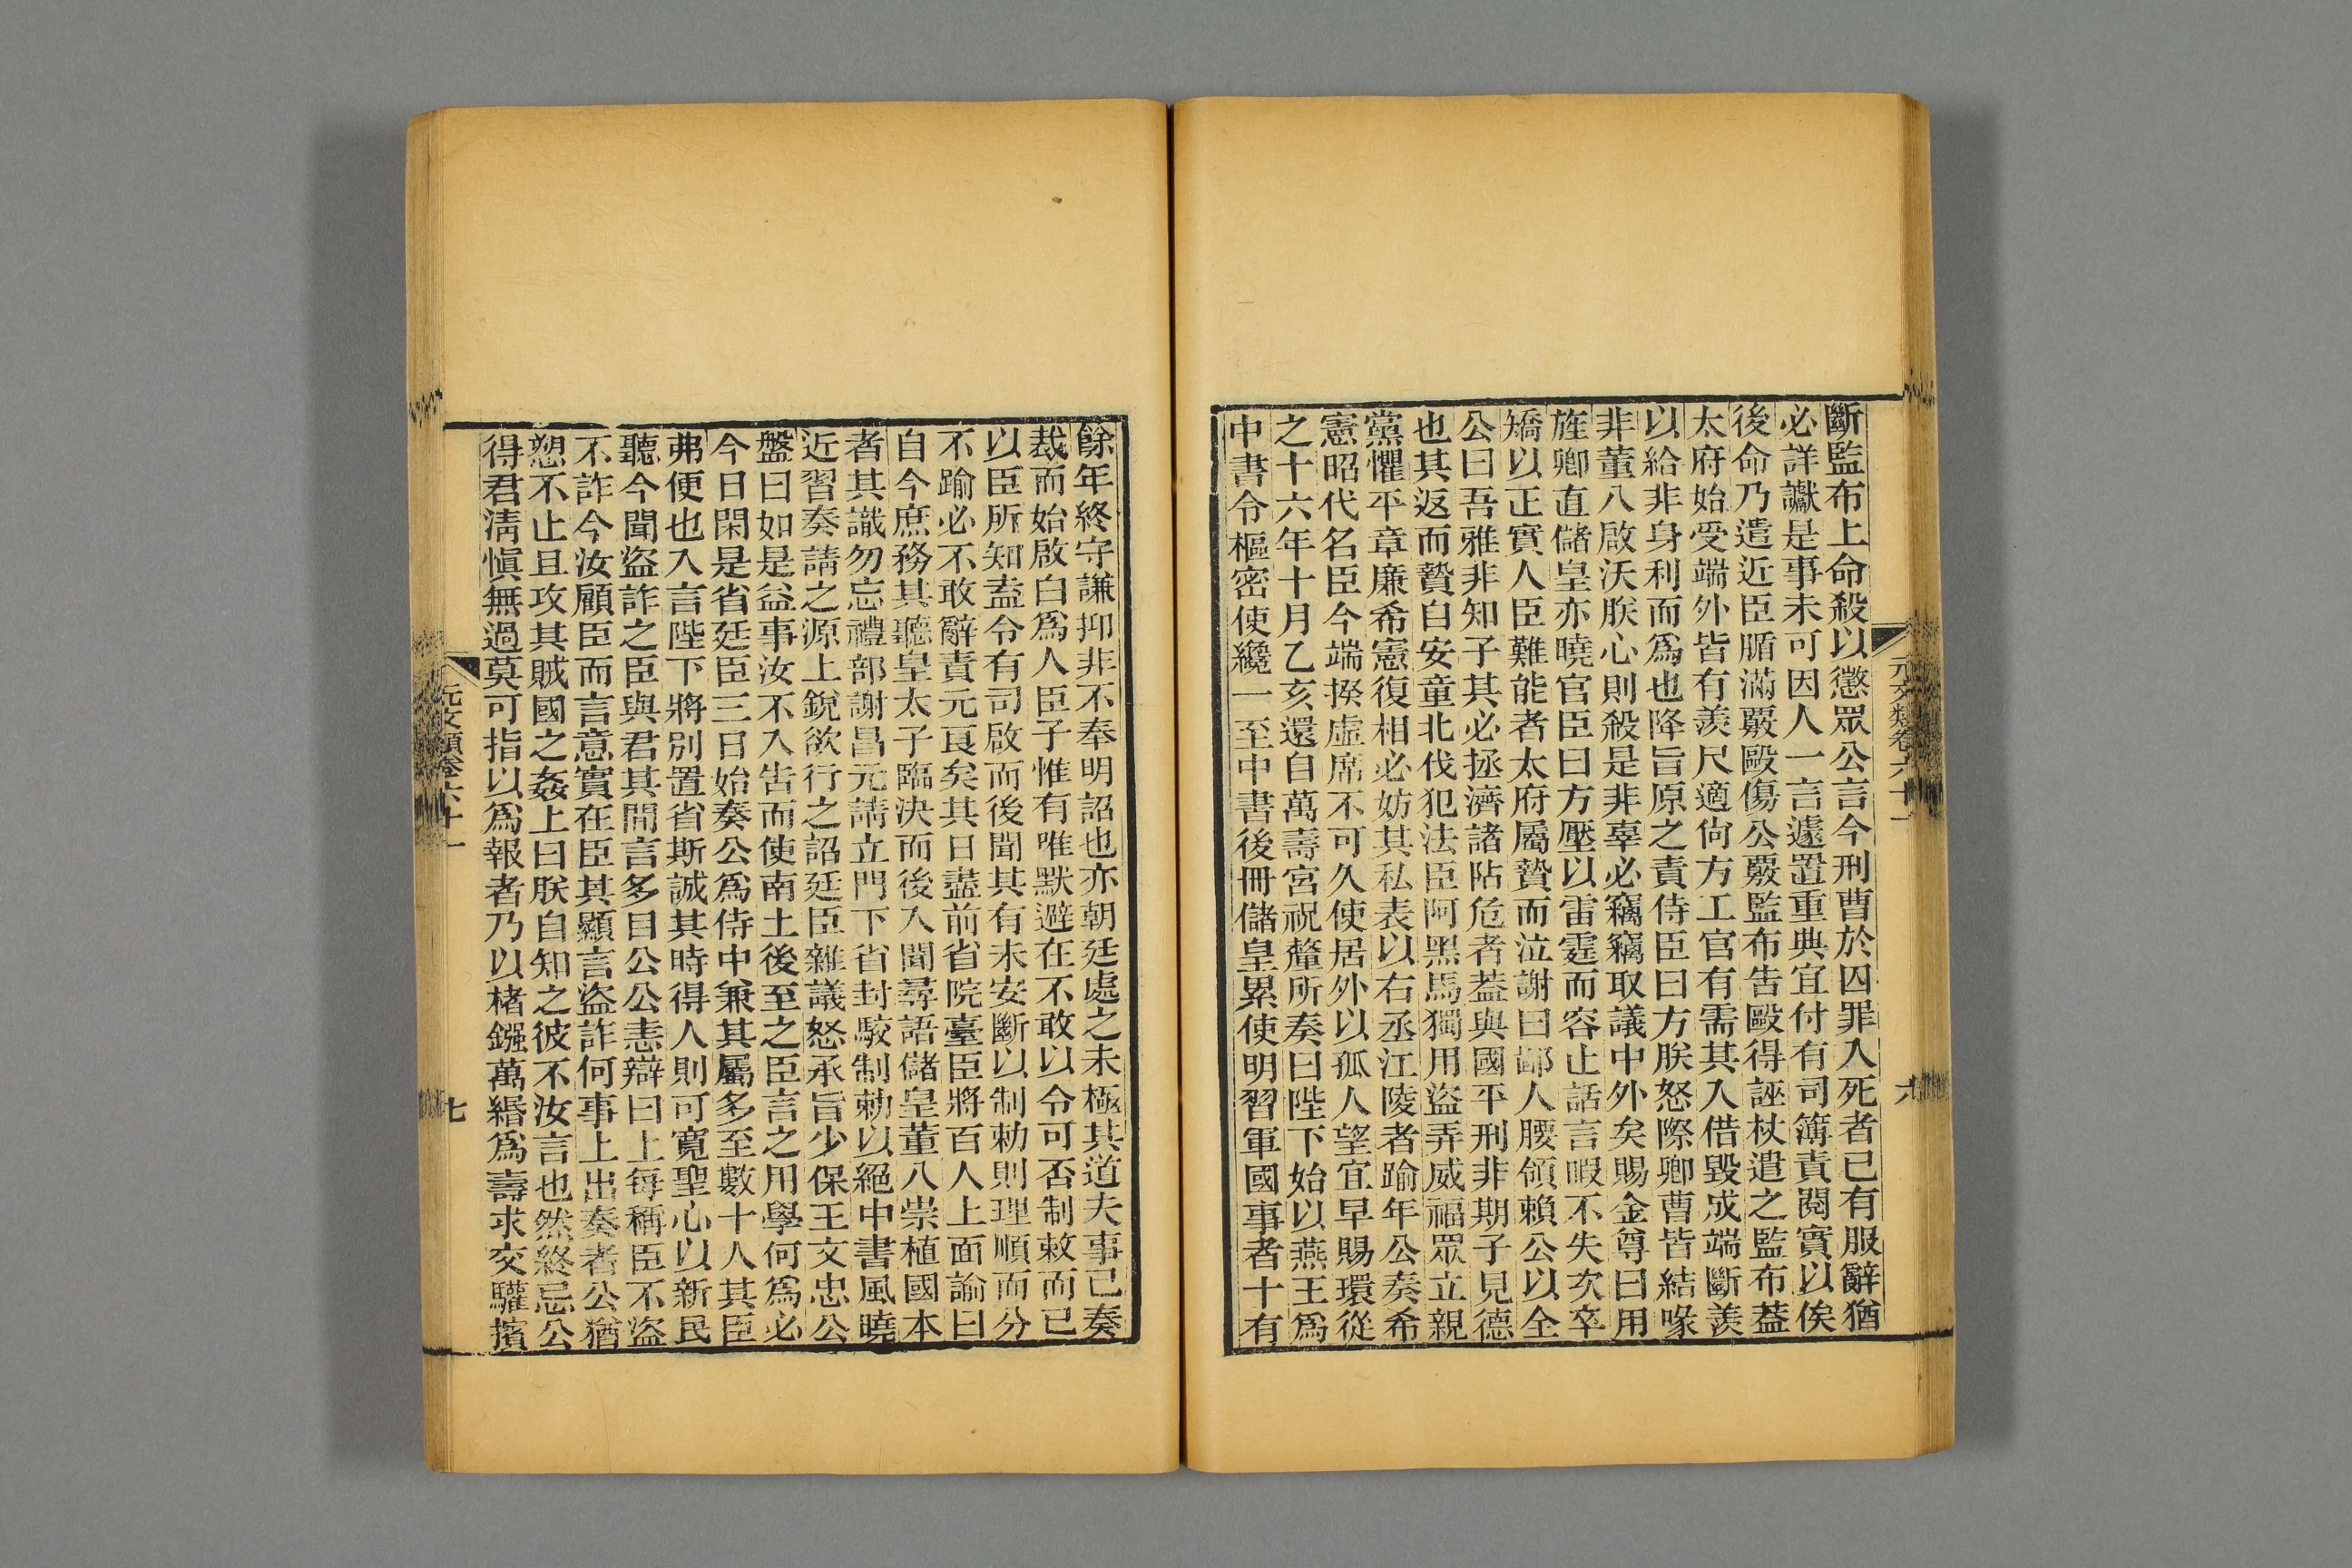 斷監布上命殺以懲眾公言今刑曹於囚罪入死者已有服辭猶
必詳讞是事未可因人一言遽置重典宜付有司簿責閱實以俟
後命乃遣近臣腯滿覈毆傷公覈監布告毆得誣杖遣之監布葢
太府始受端外皆有羨尺適尙方工官有需其入借毀成端斷羨
以給非身利而爲也降旨原之責侍臣曰方朕怒際卿曹皆結喙
非董八啟沃朕心則殺是非辜必竊竊取議中外矣賜金尊曰用
旌卿直儲皇亦曉官臣曰方壓以雷霆而容止話言暇不失次卒
矯以正實人臣難能者太府屬贊而泣謝曰鄙人腰領賴公以全
公曰吾雅非知子其必拯濟諸阽危者葢與國平刑非期子見德
也其返而贄白安童北伐犯法臣阿黑馬獨用盜弄威福眾立親
黨懼平章廉希憲復相必妨其私表以右丞江陵者踰年公奏希
憲昭代名臣今端揆虛席不可久使居外以孤人望宜早賜環從
之十六年十月乙亥還自萬壽宮祝釐所奏曰陛下始以燕王爲
中書令樞密使纔一至中書後冊儲皇累使明習軍國事者十有
元文類卷六十一
六
餘年終守謙抑非不奉明詔也亦朝廷處之未極其道夫事已奏
裁而始啟白爲人臣子惟有唯默避在不敢以令可否制敕而已
以臣所知盍令有司啟而後聞其有未安斷以制勅則理順而分
不踰必不敢辭責元良矣其日盡前省院臺臣將百人上面諭曰
自今庶務其聽皇太子臨決而後入聞尋語儲皇董八崇植國本
者其識勿忘禮部謝昌元請立門下省封駮制勅以絕中書風曉
近習奏請之源上銳欲行之詔廷臣雜議怒承旨少保王文忠公
盤曰如是益事汝不入告而使南土後至之臣言之用學何爲必
今日閑是省廷臣三日始奏公爲侍中兼其屬多至數十人其臣
弗便也入言陛下將別置省斯誠其時得人則可寬聖心以新民
聽今聞盜詐之臣與君其閒言多目公公恚辯曰上每稱臣不盜
不詐今汝顧臣而言意實在臣其顯言盜詐何事上出奏者公猶
愬不止且攻其賊國之姦上曰朕自知之彼不汝言也然終忌公
得君淸愼無過莫可指以爲報者乃以楮鏹萬緡爲壽求交驩擯
元文類卷六十一
七